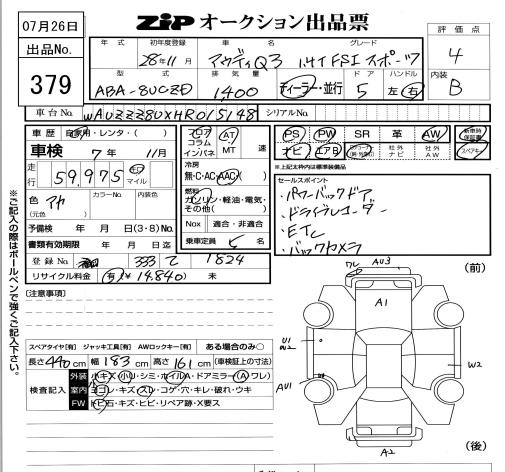 07月26日
ZiP オークション出品票
出品No.
379
年式 初年度登録 車名 グレード
28年11月 アウディQ3 FSI スポーツ
型式 排気量 ドア ハンドル
ABA-8UCZD 1,400 ディーラー・並行 5 左 右
評価点
4
内装
B
車台No. WAUZZZ8UXHR015148 シリアルNo.
車歴 自家用・レンタ・( )
車検 7年 11月
走行 59,975 km マイル
色 カラーNo. 内装色
(元色)
予備検 年 月 日(3・8)No.
書類有効期限 年 月 日迄
登録No 333 て 1824
リサイクル料金 有(¥ 14,840) 未
フロア コラム インパネ
AT MT 速
冷房
無・C・AC・AAC
燃料
ガソリン・軽油・電気・その他( )
Nox 適合・非適合
乗車定員 5 名
PS PW SR 革 AW 新車時保証書
ナビ エアB 社外ナビ 社外AW スペアキー
※上記太枠内は標準装備品
セールスポイント
・パワーバックドア
・ドライブレコーダー
・ETC
・バックカメラ
※ご記入の際はボールペンで強くご記入下さい。
[注意事項]
スペアタイヤ[有] ジャッキ工具[有] AWロックキー[有] ある場合のみ○
長さ 440 cm 幅 183 cm 高さ 161 cm (車検証上の寸法)
検査記入
外装 小キズ・小U・シミ・ホイルA・ドアミラー(A ワレ)
室内 ヨゴレ・キズ・スレ・コゲ・穴・キレ・破れ・ウキ
FW トビ石・キズ・ヒビ・リペア跡・X要ス
(前)
ワレ AU3
A1
U1
W2
W2
AU1
A2
(後)